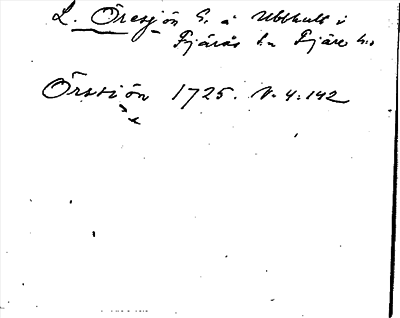 L. Öresjön S. å Ubbhult i
Fjärås sn Fjäre hd
Örssiön 1725. N. 4:142